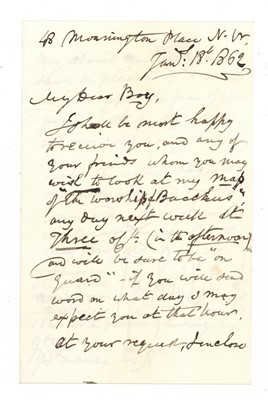 48 Mornington Place N.W.
Jany. 18th. 1862
My Dear Boy,
I shall be most happy
to receive you, and any of
your friends whom you may
wish to look at my Map
of "the Worship of Bacchus",
any day next week at
Three o/c (in the afternoon)
and will be sure to be "on
guard" - if you will send
word on what day I may
expect you at that hour.
At your request, I enclose